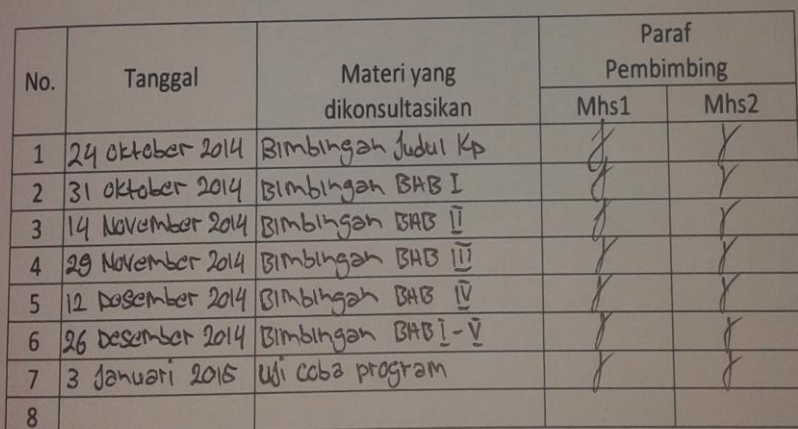 No. Tanggal Materi yang dikonsultasikan Paraf Pembimbing
Mhs1 Mhs2
1 24 Oktober 2014 Bimbingan Judul KP
2 31 Oktober 2014 Bimbingan BAB I
3 14 November 2014 Bimbingan BAB II
4 29 November 2014 Bimbingan BAB III
5 12 Desember 2014 Bimbingan BAB IV
6 26 Desember 2014 Bimbingan BAB I - V
7 3 Januari 2015 Uji coba program
8